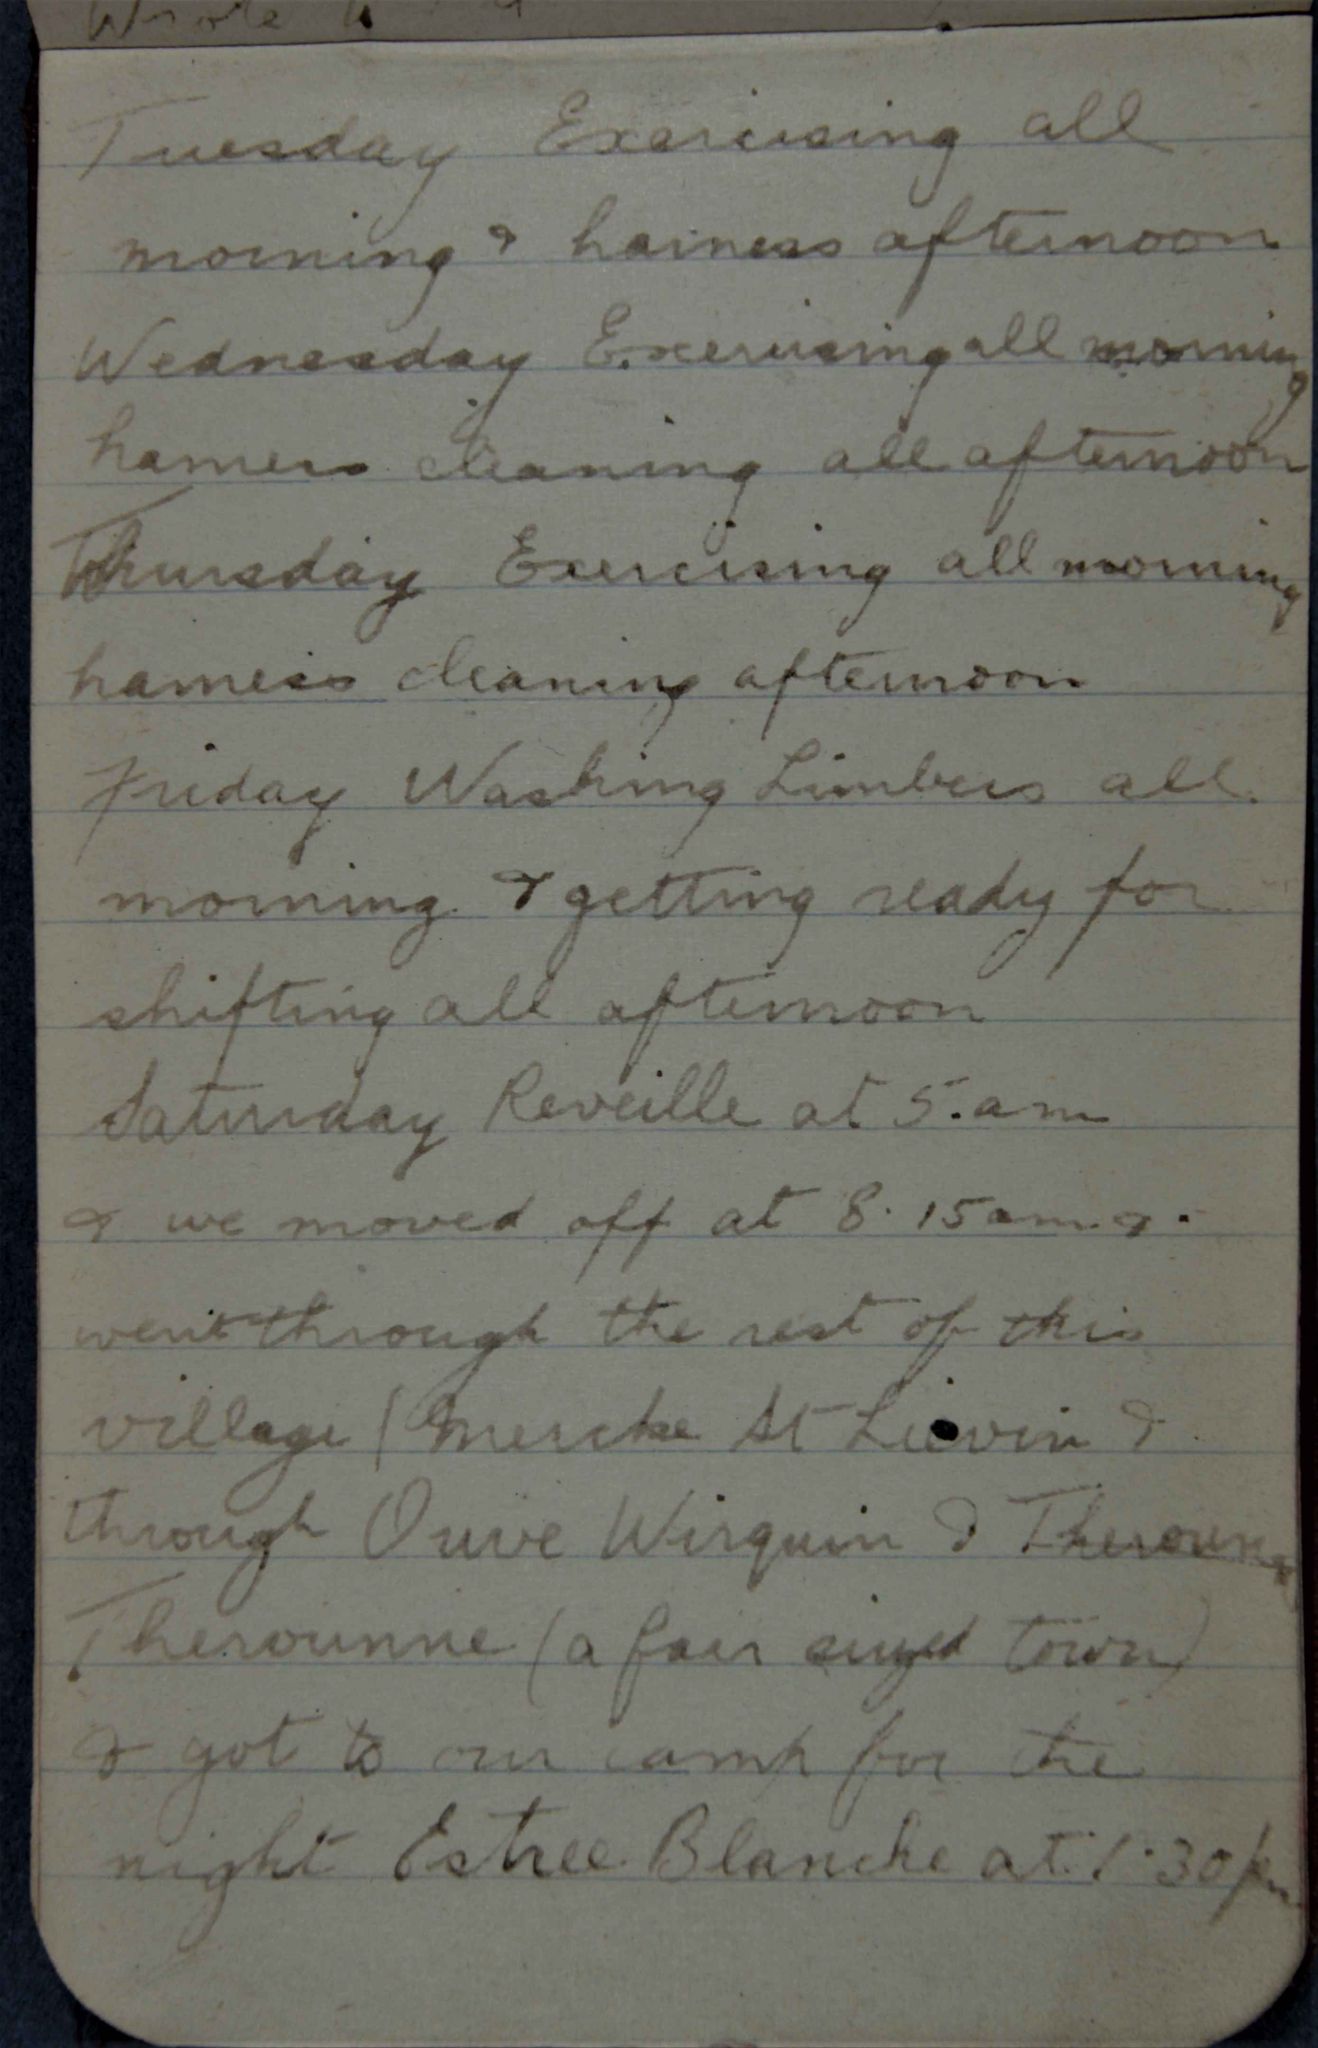 Wrote
Tuesday Exercising all
morning & harness afternoon
Wednesday Exercising all morning
harness cleaning all afternoon
Thursday Exercising all morning
harness cleaning afternoon
Friday Washing Limbers all
morning & getting ready for
shifting all afternoon
Saturday Reveille at 5.am
& we moved off at 8.15am &
went through the rest of this
village (Mercke St Lievin &
through Ouve Wirquin &
Therounne (a fair sized town)
& got to our camp for the
night Estree Blanche at 1.30pm